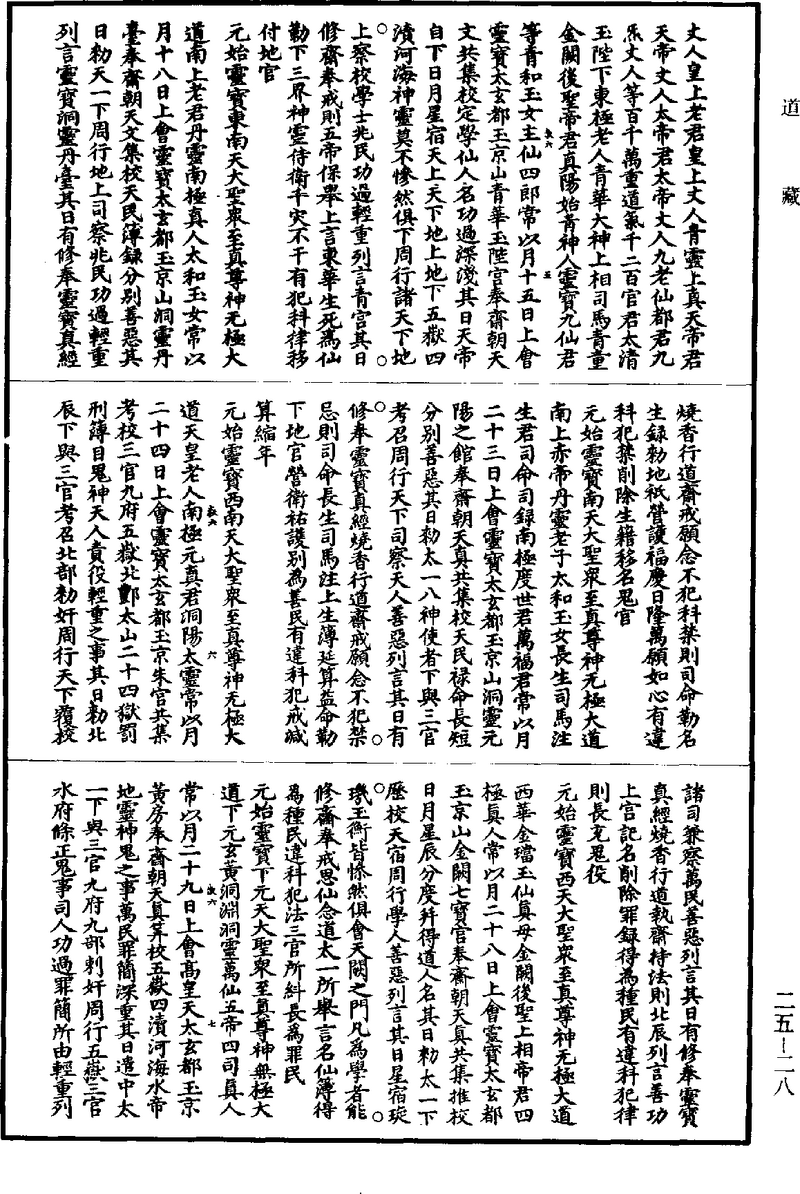 道藏
丈人皇上老君皇上丈人青靈上真天帝君
天帝丈人太帝君太帝丈人九老仙都君九
炁丈人等百千萬重道氣千二百官君太清
玉陛下東極老人青華大神上相司馬青童
金闕後聖帝君真陽始青神人靈寶九仙君
等青和玉女主仙四郎常以月十五日上會
靈寶太玄都玉京山青華玉陛宮奉齋朝天
文共集校定學仙人名功過深淺其日天帝
自下日月星宿天上天下地上地下五嶽四
瀆河海神靈莫不慘然俱下周行諸天下地
上察校學士兆民功過輕重列言青宮其日
修齋奉戒則五帝保舉上言東華生死為仙
勒下三界神靈侍衛千灾不干有犯科律移
付地官
元始靈寶東南天大聖衆至真尊神无極大
道南上老君丹靈南極真人太和玉女常以
月十八日上會靈寶太玄都玉京山洞靈丹
臺奉齋朝天文集校天民簿錄分別善惡其
日勑天一下周行地上司察兆民功過輕重
列言靈寶洞靈丹臺其日有修奉靈寶真經
燒香行道齋戒願念不犯科禁則司命勒名
生錄勑地祇營護福慶日隆萬願如心有違
科犯禁削除生籍移名鬼官
元始靈寶南天大聖衆至真尊神无極大道
南上赤帝丹靈老子太和玉女長生司馬注
生君司命司錄南極度世君萬福君常以月
二十三日上會靈寶太玄都玉京山洞靈元
陽之館奉齋朝天真共集校天民祿命長短
分別善惡其日勑太一八神使者下與三官
考召周行天下司察天人善惡列言其日有
修奉靈寶真經燒香行道齋戒願念不犯禁
忌則司命長生司馬注上生簿延算益命勒
下地官營衛祐護別為善民有違科犯戒減
算縮年
元始靈寶西南天大聖衆至真尊神无極大
道天皇老人南極元真君洞陽太靈常以月
二十四日上會靈寶太玄都玉京朱宮共集
考校三官九府五嶽北酆太山二十四獄罰
刑簿目鬼神天人責役輕重之事其日勑北
辰下與三官考召北部勑奸周行天下覆校
諸司兼察萬民善惡列言其日有修奉靈寶
真經燒香行道執齋持法則北辰列言善功
上官記名削除罪錄得為種民有違科犯律
則長充鬼役
元始靈寶西天大聖衆至真尊神无極大道
西華金璫玉仙真母金闕後聖上相帝君四
極真人常以月二十八日上會靈寶太玄都
玉京山金闕七寶宮奉齋朝天真共集推校
日月星辰分度幷得道人名其日勑太一下
歷校天宿周行學人善惡列言其日星宿璇
璣玉衡皆慘然俱會天闕之門凡為學者能
修齋奉戒思仙念道太一所舉言名仙簿得
為種民違科犯法三官所糾長為罪民
元始靈寶下元天大聖衆至真尊神無極大
道下元玄黃洞淵洞靈萬仙五帝四司真人
常以月二十九日上會高皇天太玄都玉京
黃房奉齋朝天真算校五嶽四瀆河海水帝
地靈神鬼之事萬民罪簡深重其日遣中太
一下與三官九府九部刺奸周行五嶽三官
水府條正鬼事司人功過罪簡所由輕重列
二五－二八